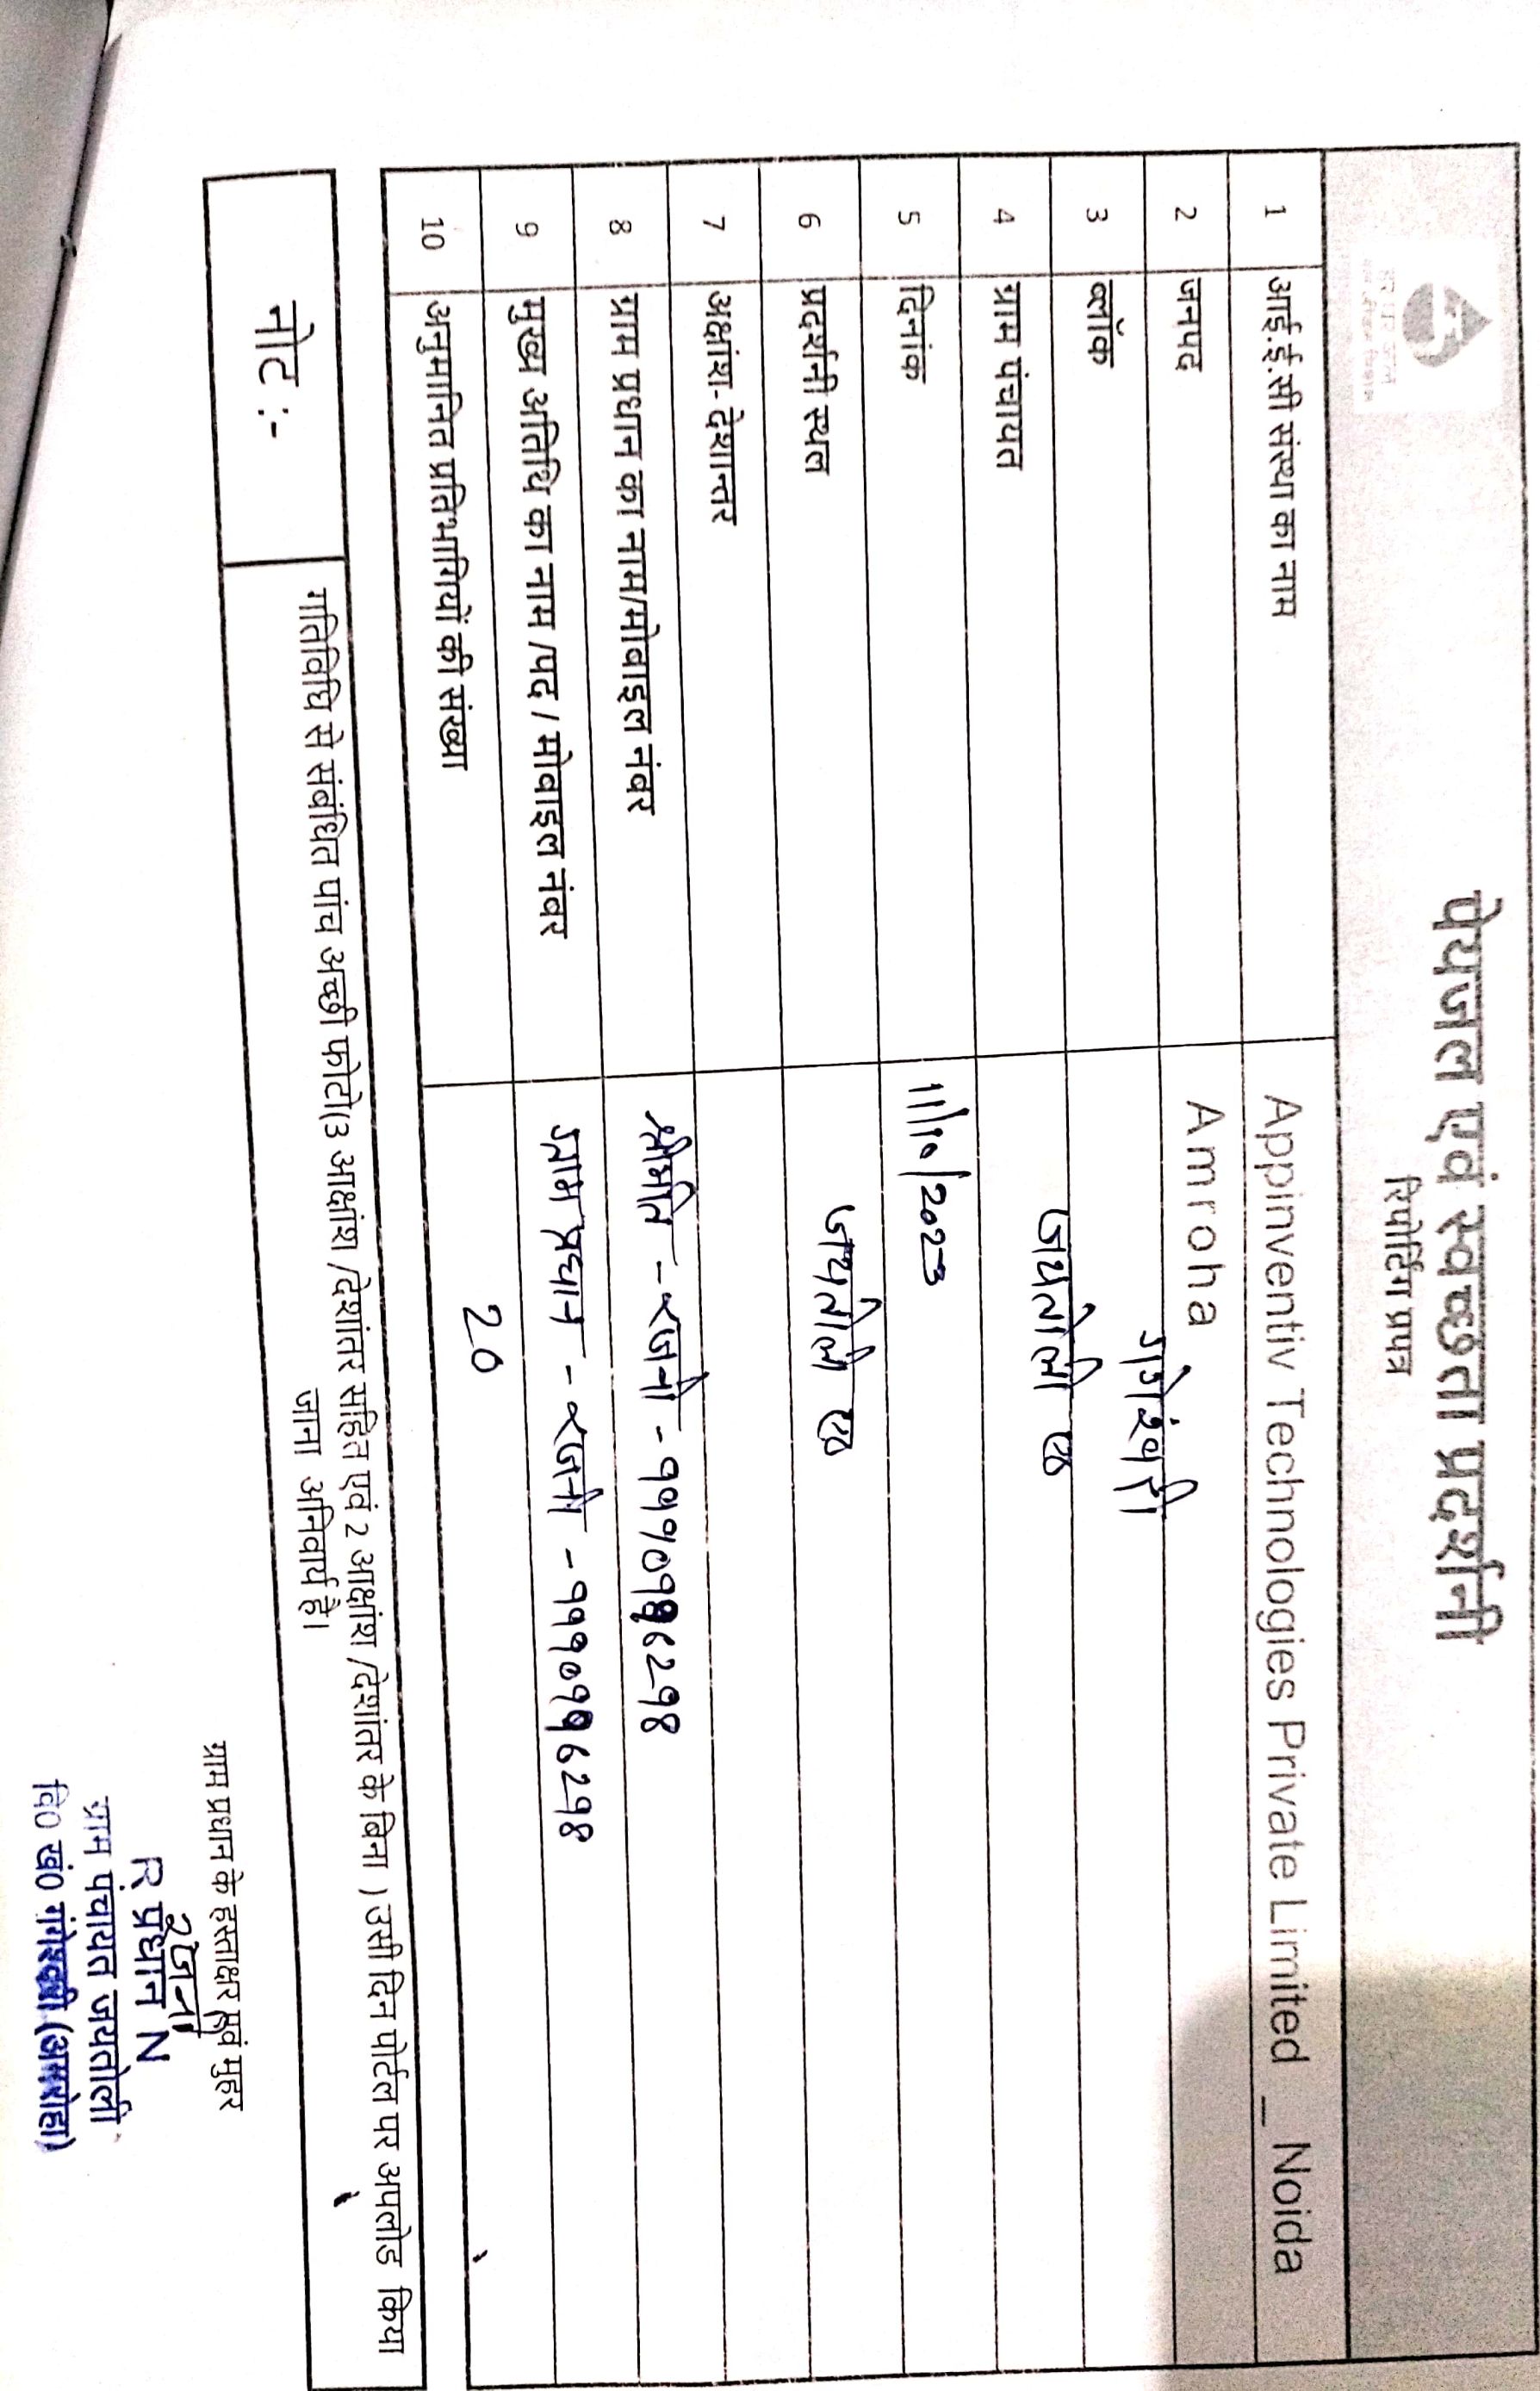 पेयजल एवं स्वच्छता प्रदर्शनी
रिपोर्टिंग प्रपत्र
1 आई.ई.सी संस्था का नाम Appinventiv Technologies Private Limited _ Noida
2 जनपद Amroha
3 ब्लॉक गंगेश्वरी
4 ग्राम पंचायत जयतोली
5 दिनांक 11/10/2023
6 प्रदर्शनी स्थल जयतोली
7 अक्षांश- देशान्तर
8 ग्राम प्रधान का नाम/मोबाइल नंबर श्रीमति - रजनी
9 मुख्य अतिथि का नाम /पद / मोबाइल नंबर ग्राम प्रधान - रजनी
10 अनुमानित प्रतिभागियों की संख्या 20
नोट :-
गतिविधि से संबंधित पांच अच्छी फोटो(3 आक्षांश /देशांतर सहित एवं 2 आक्षांश /देशांतर के बिना ) उसी दिन पोर्टल पर अपलोड किया
जाना अनिवार्य है।
ग्राम प्रधान के हस्ताक्षर एवं मुहर
रजनी
R प्रधान N
ग्राम पंचायत जयतोली
वि0 खं0 गंगेश्वरी (अमरोहा)